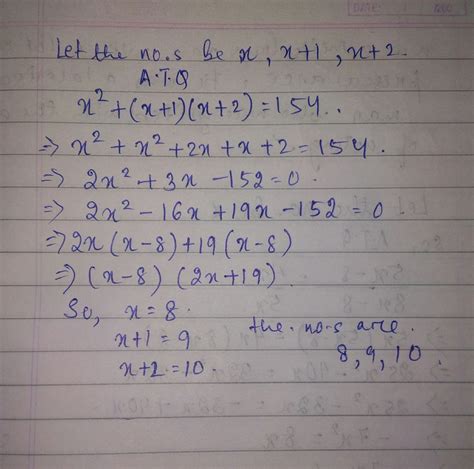 DATE
Let the no.s be x, x+1, x+2.
A.T.Q
x² + (x+1)(x+2) = 154.
⇒ x² + x² + 2x + x + 2 = 154.
⇒ 2x² + 3x - 152 = 0.
⇒ 2x² - 16x + 19x - 152 = 0
⇒ 2x(x-8) + 19(x-8)
⇒ (x-8) (2x+19).
So, x = 8.
x+1 = 9
x+2 = 10.
the no.s are.
8, 9, 10.